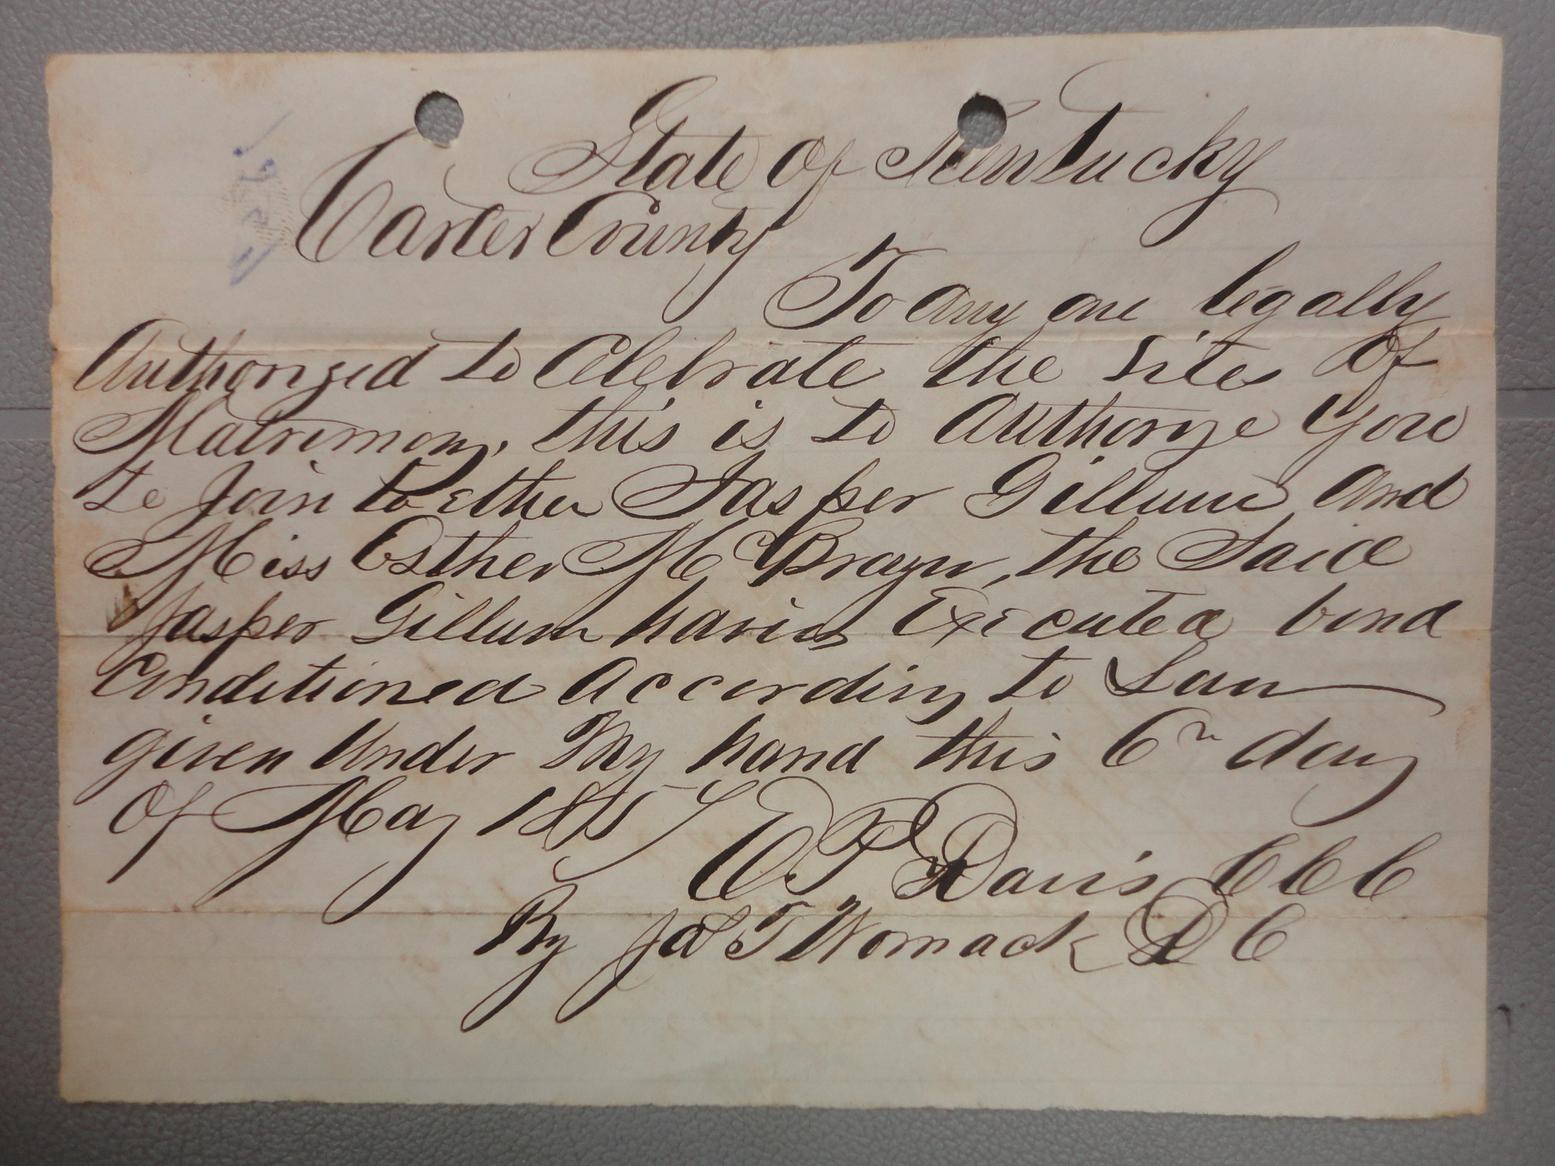 State Of Kentucky
Carter County
To Any one legally
Authorized to Celebrate the rites Of
Matrimony, this is to Authorize you
to Join together Jasper Gillum And
Miss Esther McBrayer, the Said
Jasper Gillum having Executed bond
Conditioned According to Law
given Under My hand this 6th day
Of May 1857
W. P. Davis CCC
By Jas T Womack DC